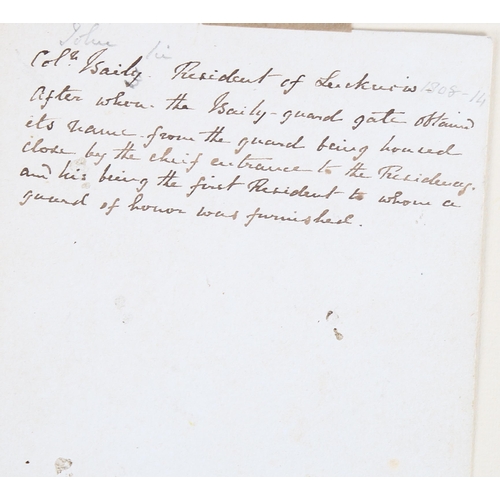 John
Col.ⁿ Baily. Resident of Lucknow 1808-14
After whom the Baily-guard gate obtained
its name from the guard being housed
close by the cheif entrance to the Residency.
and his being the first Resident to whom a
guard of honor was furnished.